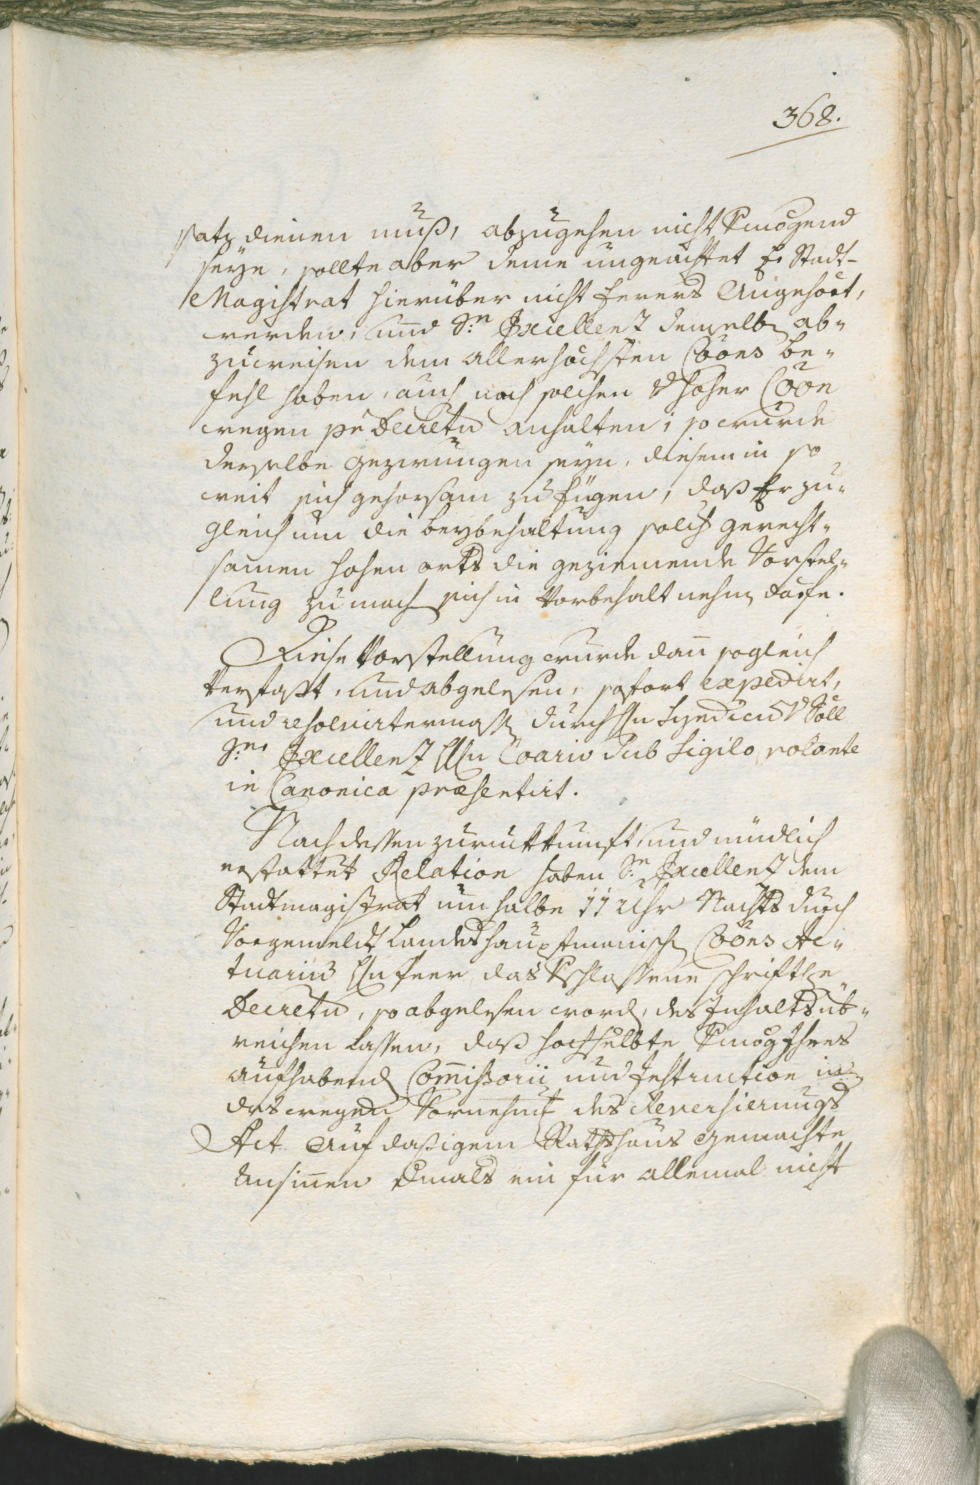 368.
satz dienen muß, abzugehen nicht vermögend
seye, sollte aber deme ungeachtet Er Stadt-
Magistrat hierüber nicht ferers Angehört,
werden, und Sr. Excellenz denselbn ab-
zuweisen dem allerhöchsten Cöons be-
fehl haben, auch nach solchen hoher Cöon
wegen per Decretu anhalten; so wurde
derselbe gezwungen seyn, diesem in so
weit sich gehorsam zu fügen, daß Er zu-
gleich um die beybehaltung solch gerecht-
samen hohen orts die geziemende Vorstel-
lung zu mach sich in Vorbehalt nehm darfe.
Diese Vorstellung wurde dan sogleich
verfaßt, und abgelesen, sofort expedirt,
und resolvirtermaß durch Hn Syndicus
Sr. Excellenz Hn Coario sub sigilo volante
in Canonica præsentirt.
Nach dessen zuruckkunft, und mündlich
erstattet Relation haben Sr. Excellenz dem
Stadtmagistrat um halbe 11 Uhr Nachts durch
Vorgemeldt Landeshauptmanisch Cöons Ac-
tuarius Hn das verschlossene schriftle
Decretu, so abgelesen word, des Inhalts üb-
reichen lassen, daß hochselbte vermög Ihres
aufhabend Comissorii und Instruction
deswegen Vornehmt des Reversierungs
Act auf dasigem Rathhaus gemachte
Ansinnen ein für allemal nicht